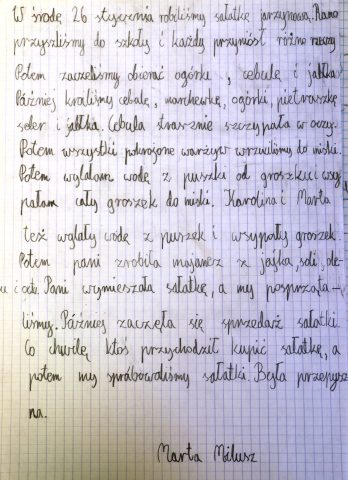 W środę 26 stycznia robiliśmy sałatkę jarzynową. Rano
przyszliśmy do szkoły i każdy przyniósł różne rzeczy
Potem zaczeliśmy obierać ogórki, cebulę i jabłka
Później kroiliśmy cebulę, marchewkę, ogórki, pietruszkę
seler i jabłka. Cebula strasznie szczypała w oczy.
Potem wszystki pokrojone warzywa wrzuciliśmy do miski.
Potem wylałam wodę z puszki od groszku i wsy
pałam cały groszek do miski. Karolina i Marta
też wylały wodę z puszek i wsypały groszek.
Potem pani zrobiła majonez z jajka, soli, ole-
ju i octu. Pani wymieszała sałatkę, a my posprząta-
liśmy. Później zaczęła się sprzedarz sałatki.
Co chwilę ktoś przychodził kupić sałatkę, a
potem my spróbowaliśmy sałatki. Była przepysz
na.
Marta Milusz